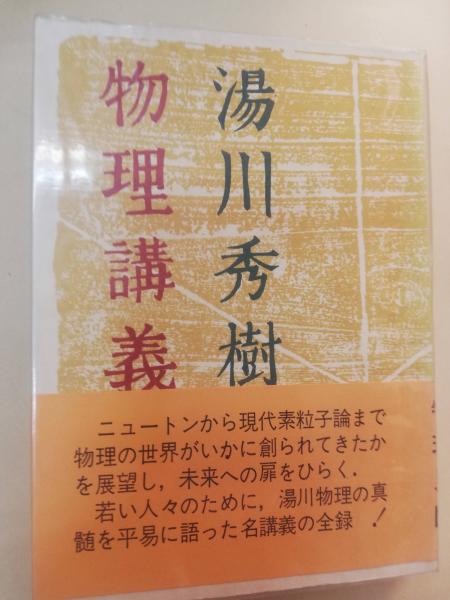 湯川秀樹
物理講義
ニュートンから現代素粒子論まで
物理の世界がいかに創られてきたか
を展望し，未来への扉をひらく．
若い人々のために，湯川物理の真
髄を平易に語った名講義の全録！